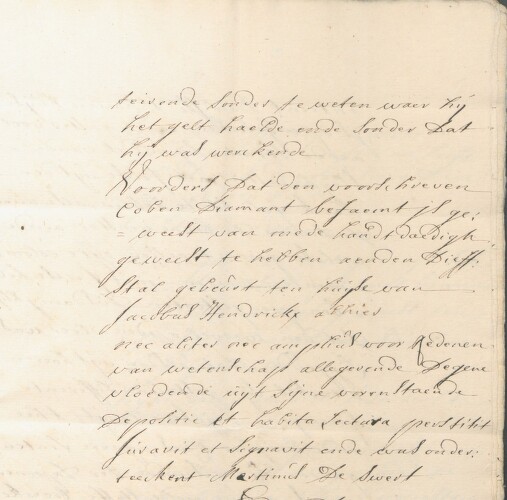 teirende sonder te weten waer hij
het gelt haelde ende sonder dat
hij was werckende
Voorders dat den voorschreven
Coben Diamant befaemt is ge=
=weest van mede handtdaedigh
geweest te hebben aenden Dieff=
stal gebeurt ten huijse van
Jacobus Hendrickx alhier
nec aliter nec amplius voor Redenen
van wetenschap allegerende Degene
vloedende uijt sijne vorenstaende
Depositie et habita lectura perstitit
Juravit et Signavit ende was onder
teeckent Martinus De Swert